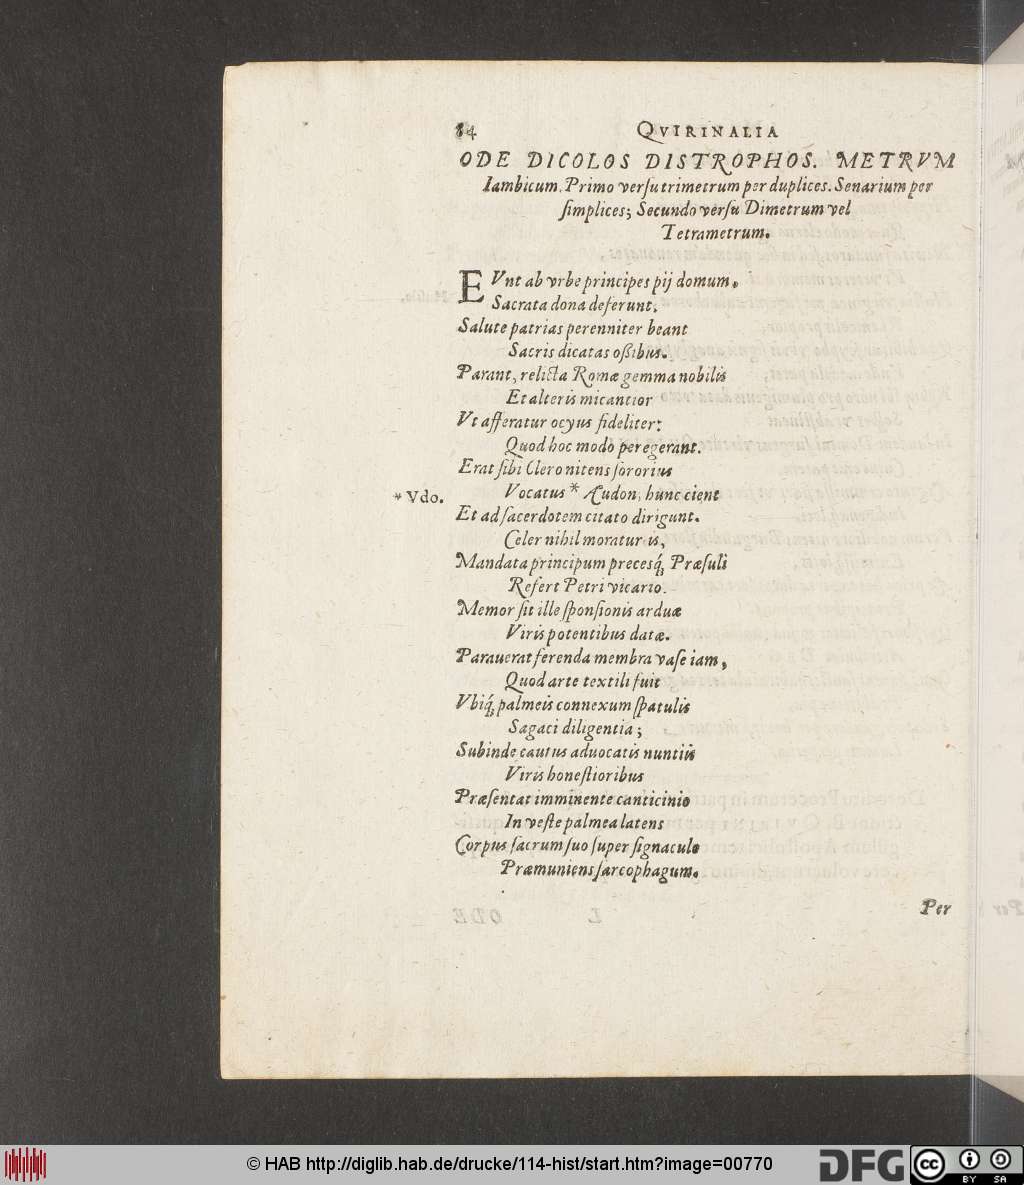 84 QVIRINALIA
ODE DICOLOS DISTROPHOS. METRVM
Iambicum. Primo verſu trimetrum per duplices. Senarium per
ſimplices; Secundo verſu Dimetrum vel
Tetrametrum.
EVnt ab vrbe principes pij domum.
Sacrata dona deferunt,
Salute patrias perenniter beant
Sacris dicatas oßibus.
Parant, relicta Romæ gemma nobilis
Et alteris micantior
Vt afferatur ocyus fideliter:
Quod hoc modo peregerant.
Erat ſibi Clero nitens ſororius
Vocatus * Æudon, hunc cient
* Vdo.
Et ad ſacerdotem citato dirigunt.
Celer nihil moratur is,
Mandata principum precesq́; Præſuli
Refert Petri vicario.
Memor ſit ille ſponſionis arduæ
Viris potentibus datæ.
Parauerat ferenda membra vaſe iam,
Quod arte textili fuit
Vbiq́; palmeis connexum ſpatulis
Sagaci diligentia;
Subinde cautus aduocatis nuntiis
Viris honeſtioribus
Præſentat imminente canticinio
In veſte palmea latens
Corpus ſacrum ſuo ſuper ſignaculo
Præmuniens ſarcophagum.
Per
© HAB http://diglib.hab.de/drucke/114-hist/start.htm?image=00770
DFG cc BY SA